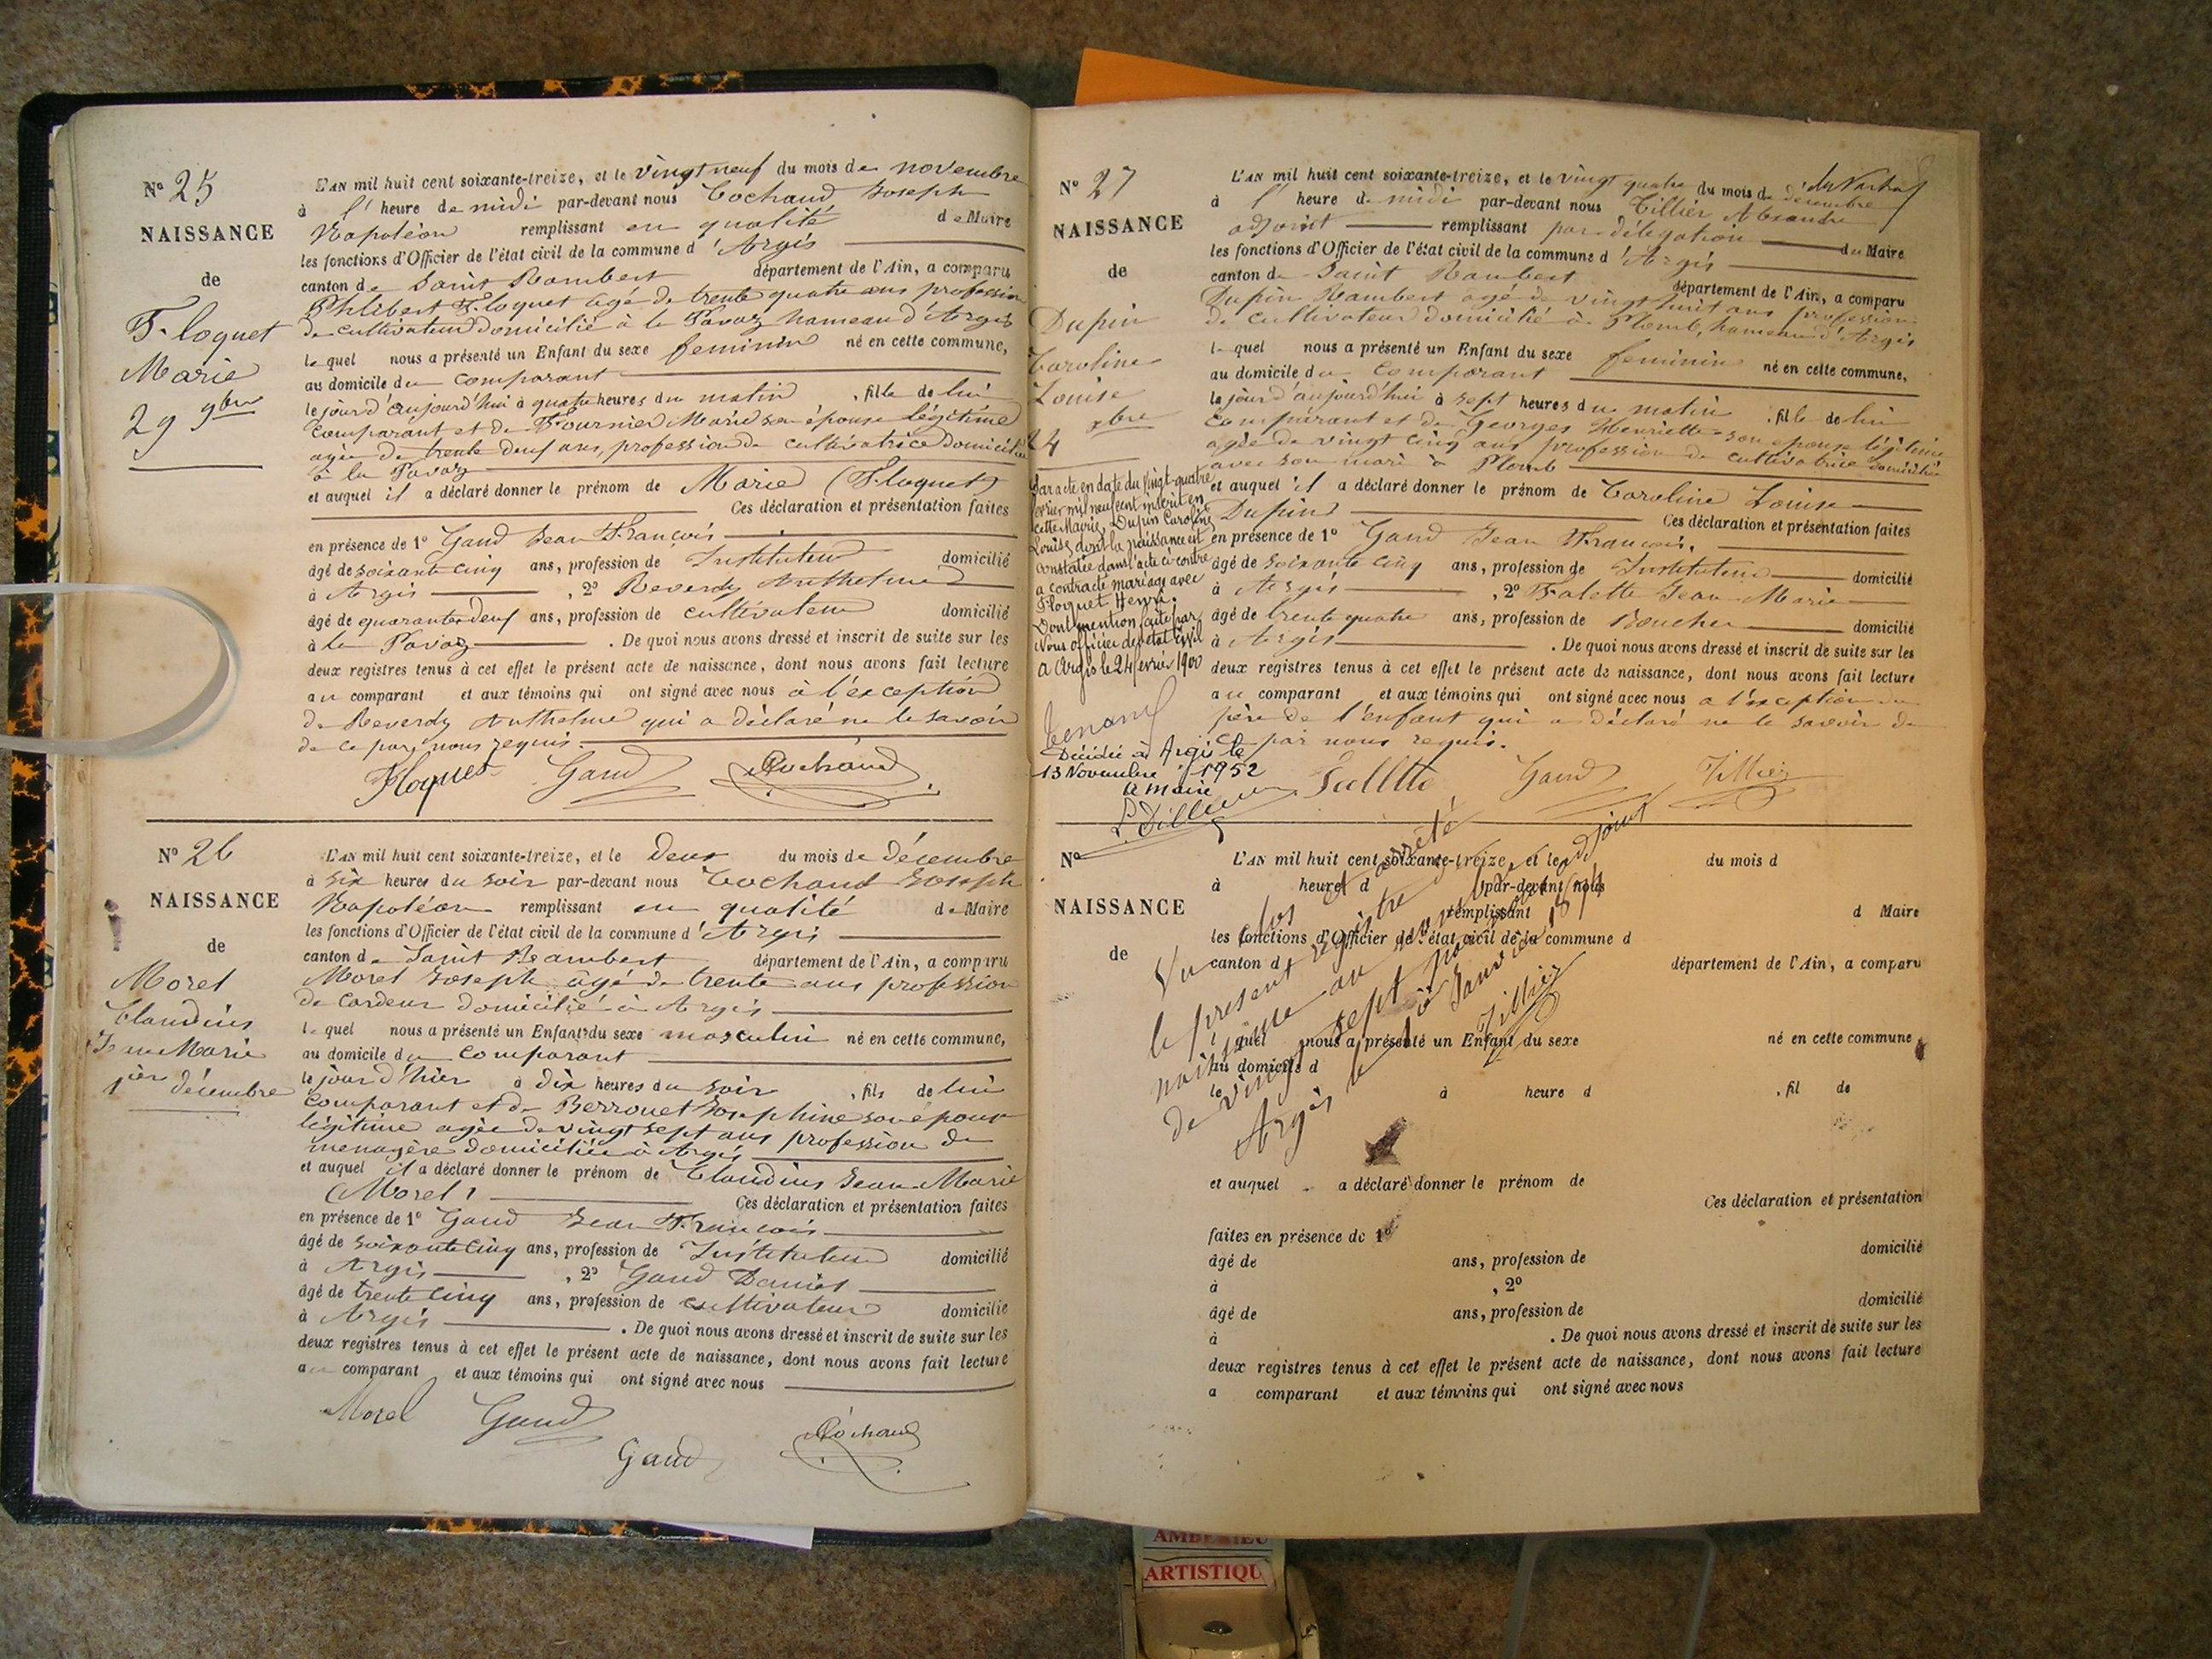 N° 25
NAISSANCE
de
Floquet
Marie
29 9bre
L'AN mil huit cent soixante-treize, et le vingt neuf du mois de novembre
à l' heure de midi par-devant nous Cochaud Joseph
Napoléon remplissant en qualité de Maire
les fonctions d'Officier de l'état civil de la commune d'Argis
canton de Saint Rambert département de l'Ain, a comparu
Philibert Floquet agé de trente quatre ans profession
de cultivateur domicilié à la Pavaz hameau d'Argis
lequel nous a présenté un Enfant du sexe feminin né en cette commune,
au domicile du comparant
le jour d'aujourd'hui à quatre heures du matin, fille de lui
comparant et de Fournier Marie son épouse légitime
agée de trente deux ans, profession de cultivatrice domiciliée
à la Pavaz
et auquel il a déclaré donner le prénom de Marie (Floquet)
Ces déclaration et présentation faites
en présence de 1° Gaud Jean François
âgé de soixante cinq ans, profession de Instituteur domicilié
à Argis, 2° Reverdy Anthelme
âgé de quarante deux ans, profession de cultivateur domicilié
à la Pavaz. De quoi nous avons dressé et inscrit de suite sur les
deux registres tenus à cet effet le présent acte de naissance, dont nous avons fait lecture
au comparant et aux témoins qui ont signé avec nous à l'exception
de Reverdy Anthelme qui a déclaré ne le savoir
de ce par nous requis.
Floquet Gaud Cochaud
N° 26
NAISSANCE
de
Morel
Claudius
Jean Marie
1er décembre
L'AN mil huit cent soixante-treize, et le deux du mois de décembre
à six heures du soir par-devant nous Cochaud Joseph
Napoléon remplissant en qualité de Maire
les fonctions d'Officier de l'état civil de la commune d'Argis
canton de Saint Rambert département de l'Ain, a comparu
Morel Joseph âgé de trente ans profession
de cardeur domicilié à Argis
lequel nous a présenté un Enfant du sexe masculin né en cette commune,
au domicile du comparant
le jour d'hier à dix heures du soir, fils de lui
comparant et de Berrouet Josephine son épouse
légitime agée de vingt sept ans profession de
menagère domiciliée à Argis
et auquel il a déclaré donner le prénom de Claudius Jean Marie
(Morel)
Ces déclaration et présentation faites
en présence de 1° Gaud Jean François
âgé de soixante cinq ans, profession de Instituteur domicilié
à Argis, 2° Gaud Daniel
âgé de trente cinq ans, profession de cultivateur domicilié
à Argis. De quoi nous avons dressé et inscrit de suite sur les
deux registres tenus à cet effet le présent acte de naissance, dont nous avons fait lecture
au comparant et aux témoins qui ont signé avec nous
Morel Gaud
Gaud Cochaud
N° 27
NAISSANCE
de
Dupin
Caroline
Louise
24 xbre
Par acte en date du vingt-quatre
février mil neuf cent inscrit en
cette Mairie, Dupin Caroline
Louise, dont la naissance est
constatée dans l'acte ci-contre
a contracté mariage avec
Floquet Henri.
Dont mention faite par
Nous officier de l'état civil
A Argis le 24 février 1900
Décédée à Argis le
13 Novembre 1952
Le maire
L'AN mil huit cent soixante-treize, et le vingt quatre du mois de décembre
à l' heure de midi par-devant nous Tillier Alexandre
adjoint remplissant par délégation du Maire
les fonctions d'Officier de l'état civil de la commune d'Argis
canton de Saint Rambert département de l'Ain, a comparu
Dupin Rambert agé de vingt huit ans profession
de cultivateur domicilié à Plomb, hameau d'Argis
lequel nous a présenté un Enfant du sexe feminin né en cette commune,
au domicile du comparant
le jour d'aujourd'hui à sept heures du matin, fille de lui
comparant et de Georges Henriette son épouse légitime
agée de vingt cinq ans profession de cultivatrice domiciliée
avec son mari à Plomb
et auquel il a déclaré donner le prénom de Caroline Louise
Dupin
Ces déclaration et présentation faites
en présence de 1° Gaud Jean François.
âgé de soixante cinq ans, profession de Instituteur domicilié
à Argis, 2° Falette Jean Marie
âgé de trente quatre ans, profession de Boucher domicilié
à Argis. De quoi nous avons dressé et inscrit de suite sur les
deux registres tenus à cet effet le présent acte de naissance, dont nous avons fait lecture
au comparant et aux témoins qui ont signé avec nous a l'exception du
père de l'enfant qui a déclaré ne le savoir de
ce par nous requis.
Gaud Tillier
N°
NAISSANCE
de
L'AN mil huit cent soixante-treize, et le du mois d
à heure d par-devant nous
remplissant d Maire
les fonctions d'Officier de l'état civil de la commune d
canton d département de l'Ain, a comparu
lequel nous a présenté un Enfant du sexe né en cette commune,
au domicile d
le à heure d, fil de
et auquel a déclaré donner le prénom de
Ces déclaration et présentation
faites en présence de 1°
âgé de ans, profession de domicilié
à, 2°
âgé de ans, profession de domicilié
à. De quoi nous avons dressé et inscrit de suite sur les
deux registres tenus à cet effet le présent acte de naissance, dont nous avons fait lecture
a comparant et aux témoins qui ont signé avec nous
Vu clos et arrêté
le présent registre
de vingt sept
Argis le Janvier
Tillier
AMBERIEU
ARTISTIQU